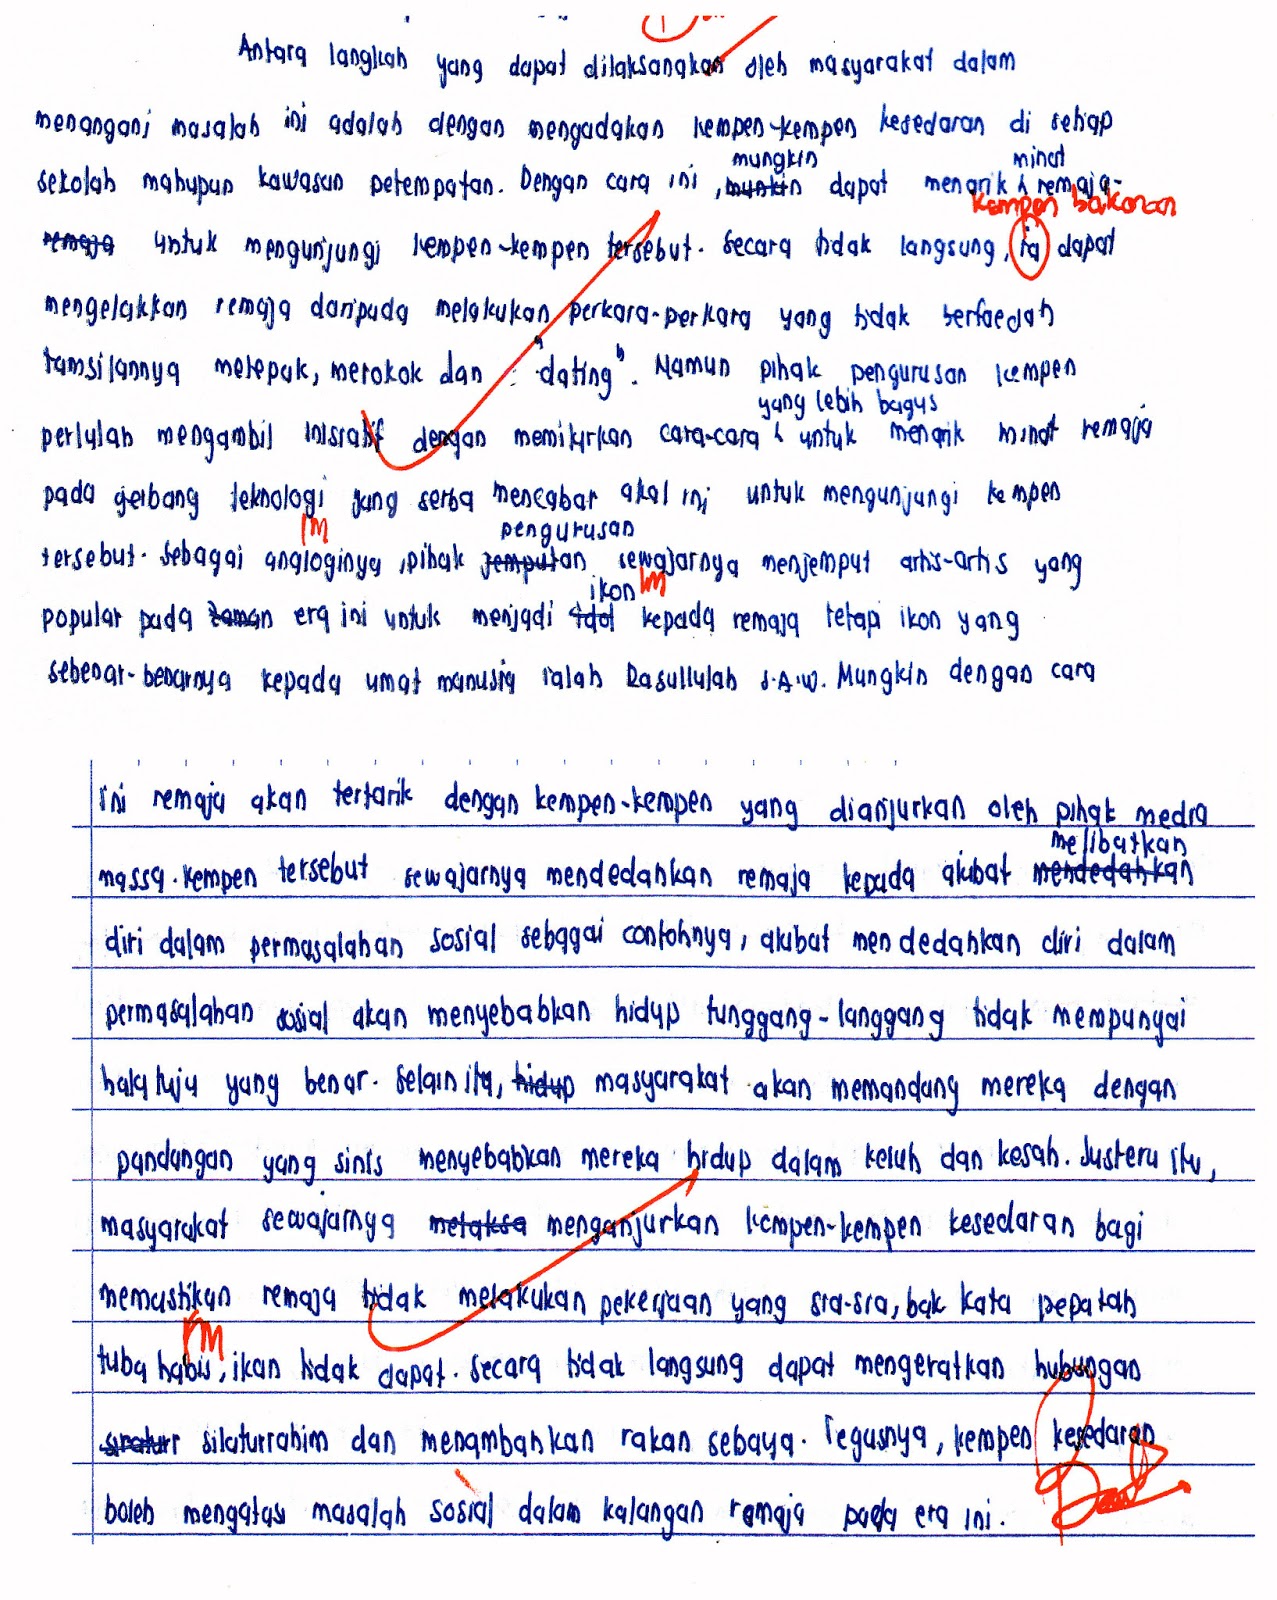 Antara langkah yang dapat dilaksanakan oleh masyarakat dalam
menangani masalah ini adalah dengan mengadakan kempen-kempen kesedaran di setiap
mungkin minat
sekolah mahupun kawasan petempatan. Dengan cara ini, munkin dapat menarik remaja-
kempen bakonan
remaja untuk mengunjungi kempen-kempen tersebut. Secara tidak langsung, ia dapat
mengelakkan remaja daripada melakukan perkara-perkara yang tidak berfaedah
tamsilannya melepak, merokok dan "dating". Namun pihak pengurusan kempen
yang lebih bagus
perlulah mengambil inisiatif dengan memikirkan cara-cara untuk menarik minat remaja
pada gerbang teknologi yang serba mencabar akal ini untuk mengunjungi kempen
m pengurusan
tersebut. Sebagai analoginya, pihak jemputan sewajarnya menjemput artis-artis yang
ikon m
popular pada zaman era ini untuk menjadi idol kepada remaja tetapi ikon yang
sebenar-benarnya kepada umat manusia ialah Rasullulah S.A.W. Mungkin dengan cara
ini remaja akan tertarik dengan kempen-kempen yang dianjurkan oleh pihak media
melibatkan
massa. Kempen tersebut sewajarnya mendedahkan remaja kepada akibat mendedahkan
diri dalam permasalahan sosial sebagai contohnya, akibat mendedahkan diri dalam
permasalahan sosial akan menyebabkan hidup tunggang-langgang tidak mempunyai
hala tuju yang benar. Selain itu, hidup masyarakat akan memandang mereka dengan
pandangan yang sinis menyebabkan mereka hidup dalam keluh dan kesah. Justeru itu,
masyarakat sewajarnya melaksa menganjurkan kempen-kempen kesedaran bagi
memastikan remaja tidak melakukan pekerjaan yang sia-sia, bak kata pepatah
m
tuba habis, ikan tidak dapat. Secara tidak langsung dapat mengeratkan hubungan
silaturrahim dan menambahkan rakan sebaya. Tegasnya, kempen kesedaran
boleh mengatasi masalah sosial dalam kalangan remaja pada era ini.